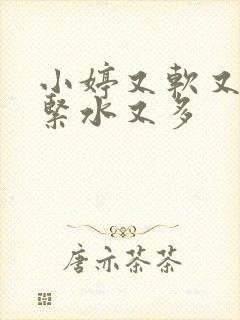 小婷又軟又
緊水又多
唐亦茶茶